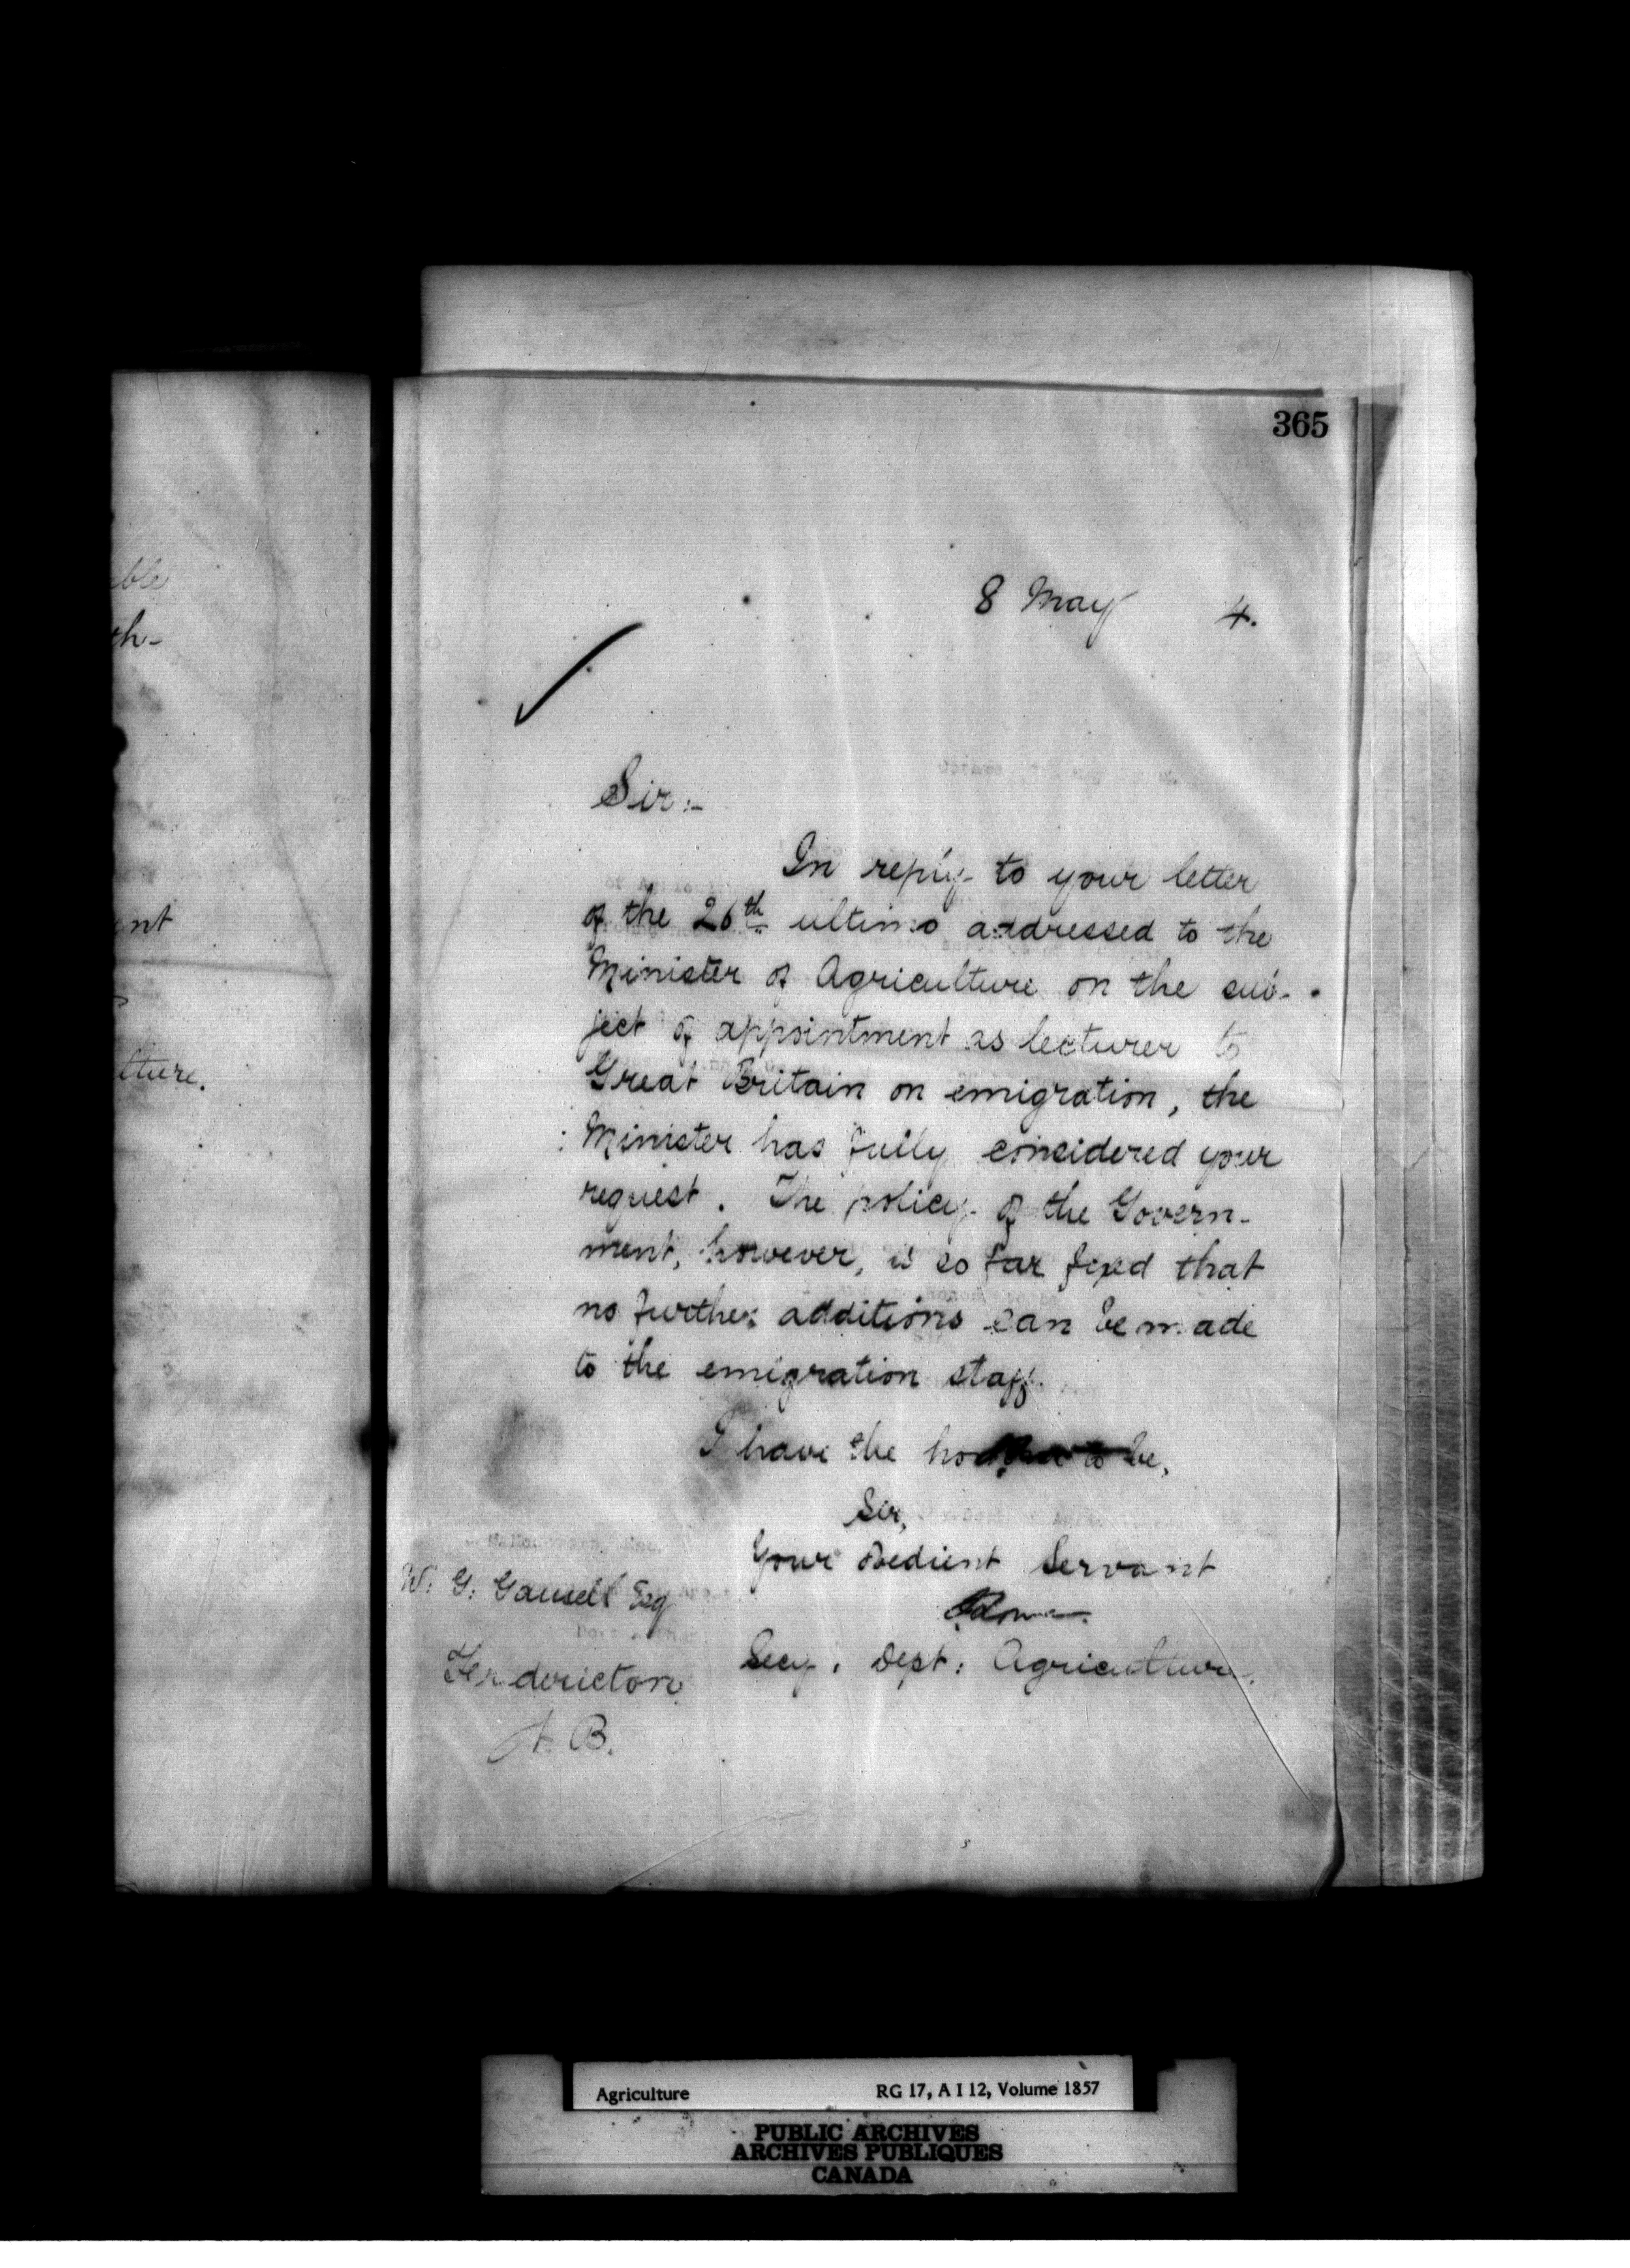 ble
th-
ent
lture.
365
8 May 4.
Sir:-
In reply to your letter
of the 26th ultimo addressed to the
Minister of Agriculture on the sub-
ject of appointment as lecturer to
Great Britain on emigration, the
Minister has fully considered your
request. The policy of the Govern-
ment, however, is so far fixed that
no further additions can be made
to the emigration staff.
I have the honor to be,
Sir,
Your obedient servant
Secy. Dept: Agriculture.
W. G. Gaunell Esq
Fredericton
N. B.
Agriculture RG 17, A I 12, Volume 1857
PUBLIC ARCHIVES
ARCHIVES PUBLIQUES
CANADA